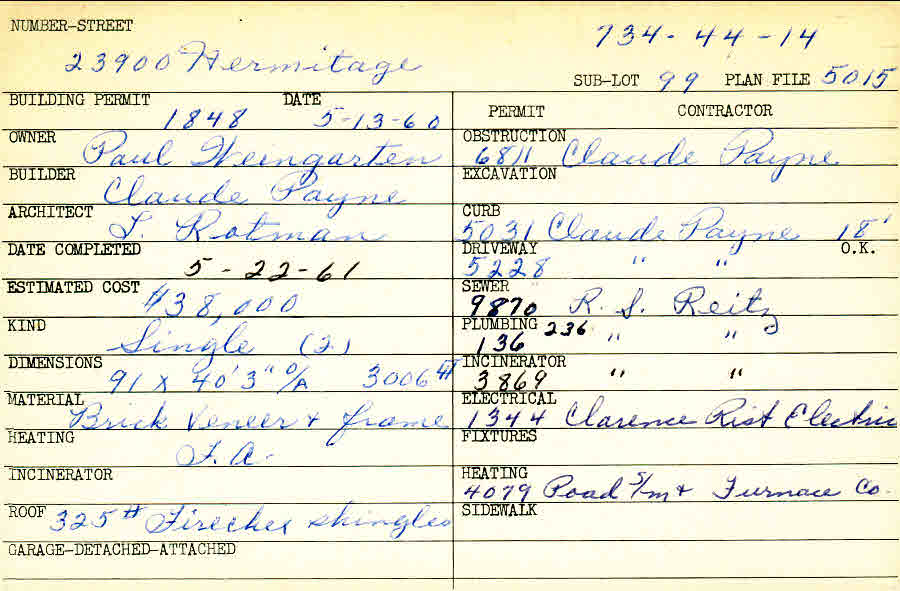 NUMBER-STREET
734-44-14
23900 Hermitage
SUB-LOT 99 PLAN FILE 5015
BUILDING PERMIT DATE
1848 5-13-60
PERMIT CONTRACTOR
OWNER
Paul Weingarten
OBSTRUCTION
6811 Claude Payne
BUILDER
Claude Payne
EXCAVATION
ARCHITECT
L. Rotman
CURB
5031 Claude Payne 18'
DATE COMPLETED
5-22-61
DRIVEWAY O.K.
5228 " "
ESTIMATED COST
$38,000
SEWER
9870 R. S. Reitz
KIND
Single (2)
PLUMBING 236
136 " "
DIMENSIONS
91 x 40'3" O/A 3006
INCINERATOR
3869 " "
MATERIAL
Brick Veneer & frame
ELECTRICAL
1344 Clarence Rist Electric
HEATING
F.A.
FIXTURES
INCINERATOR
HEATING
4079 Poad S/m & Furnace Co.
ROOF 325# Firechex shingles
SIDEWALK
GARAGE-DETACHED-ATTACHED